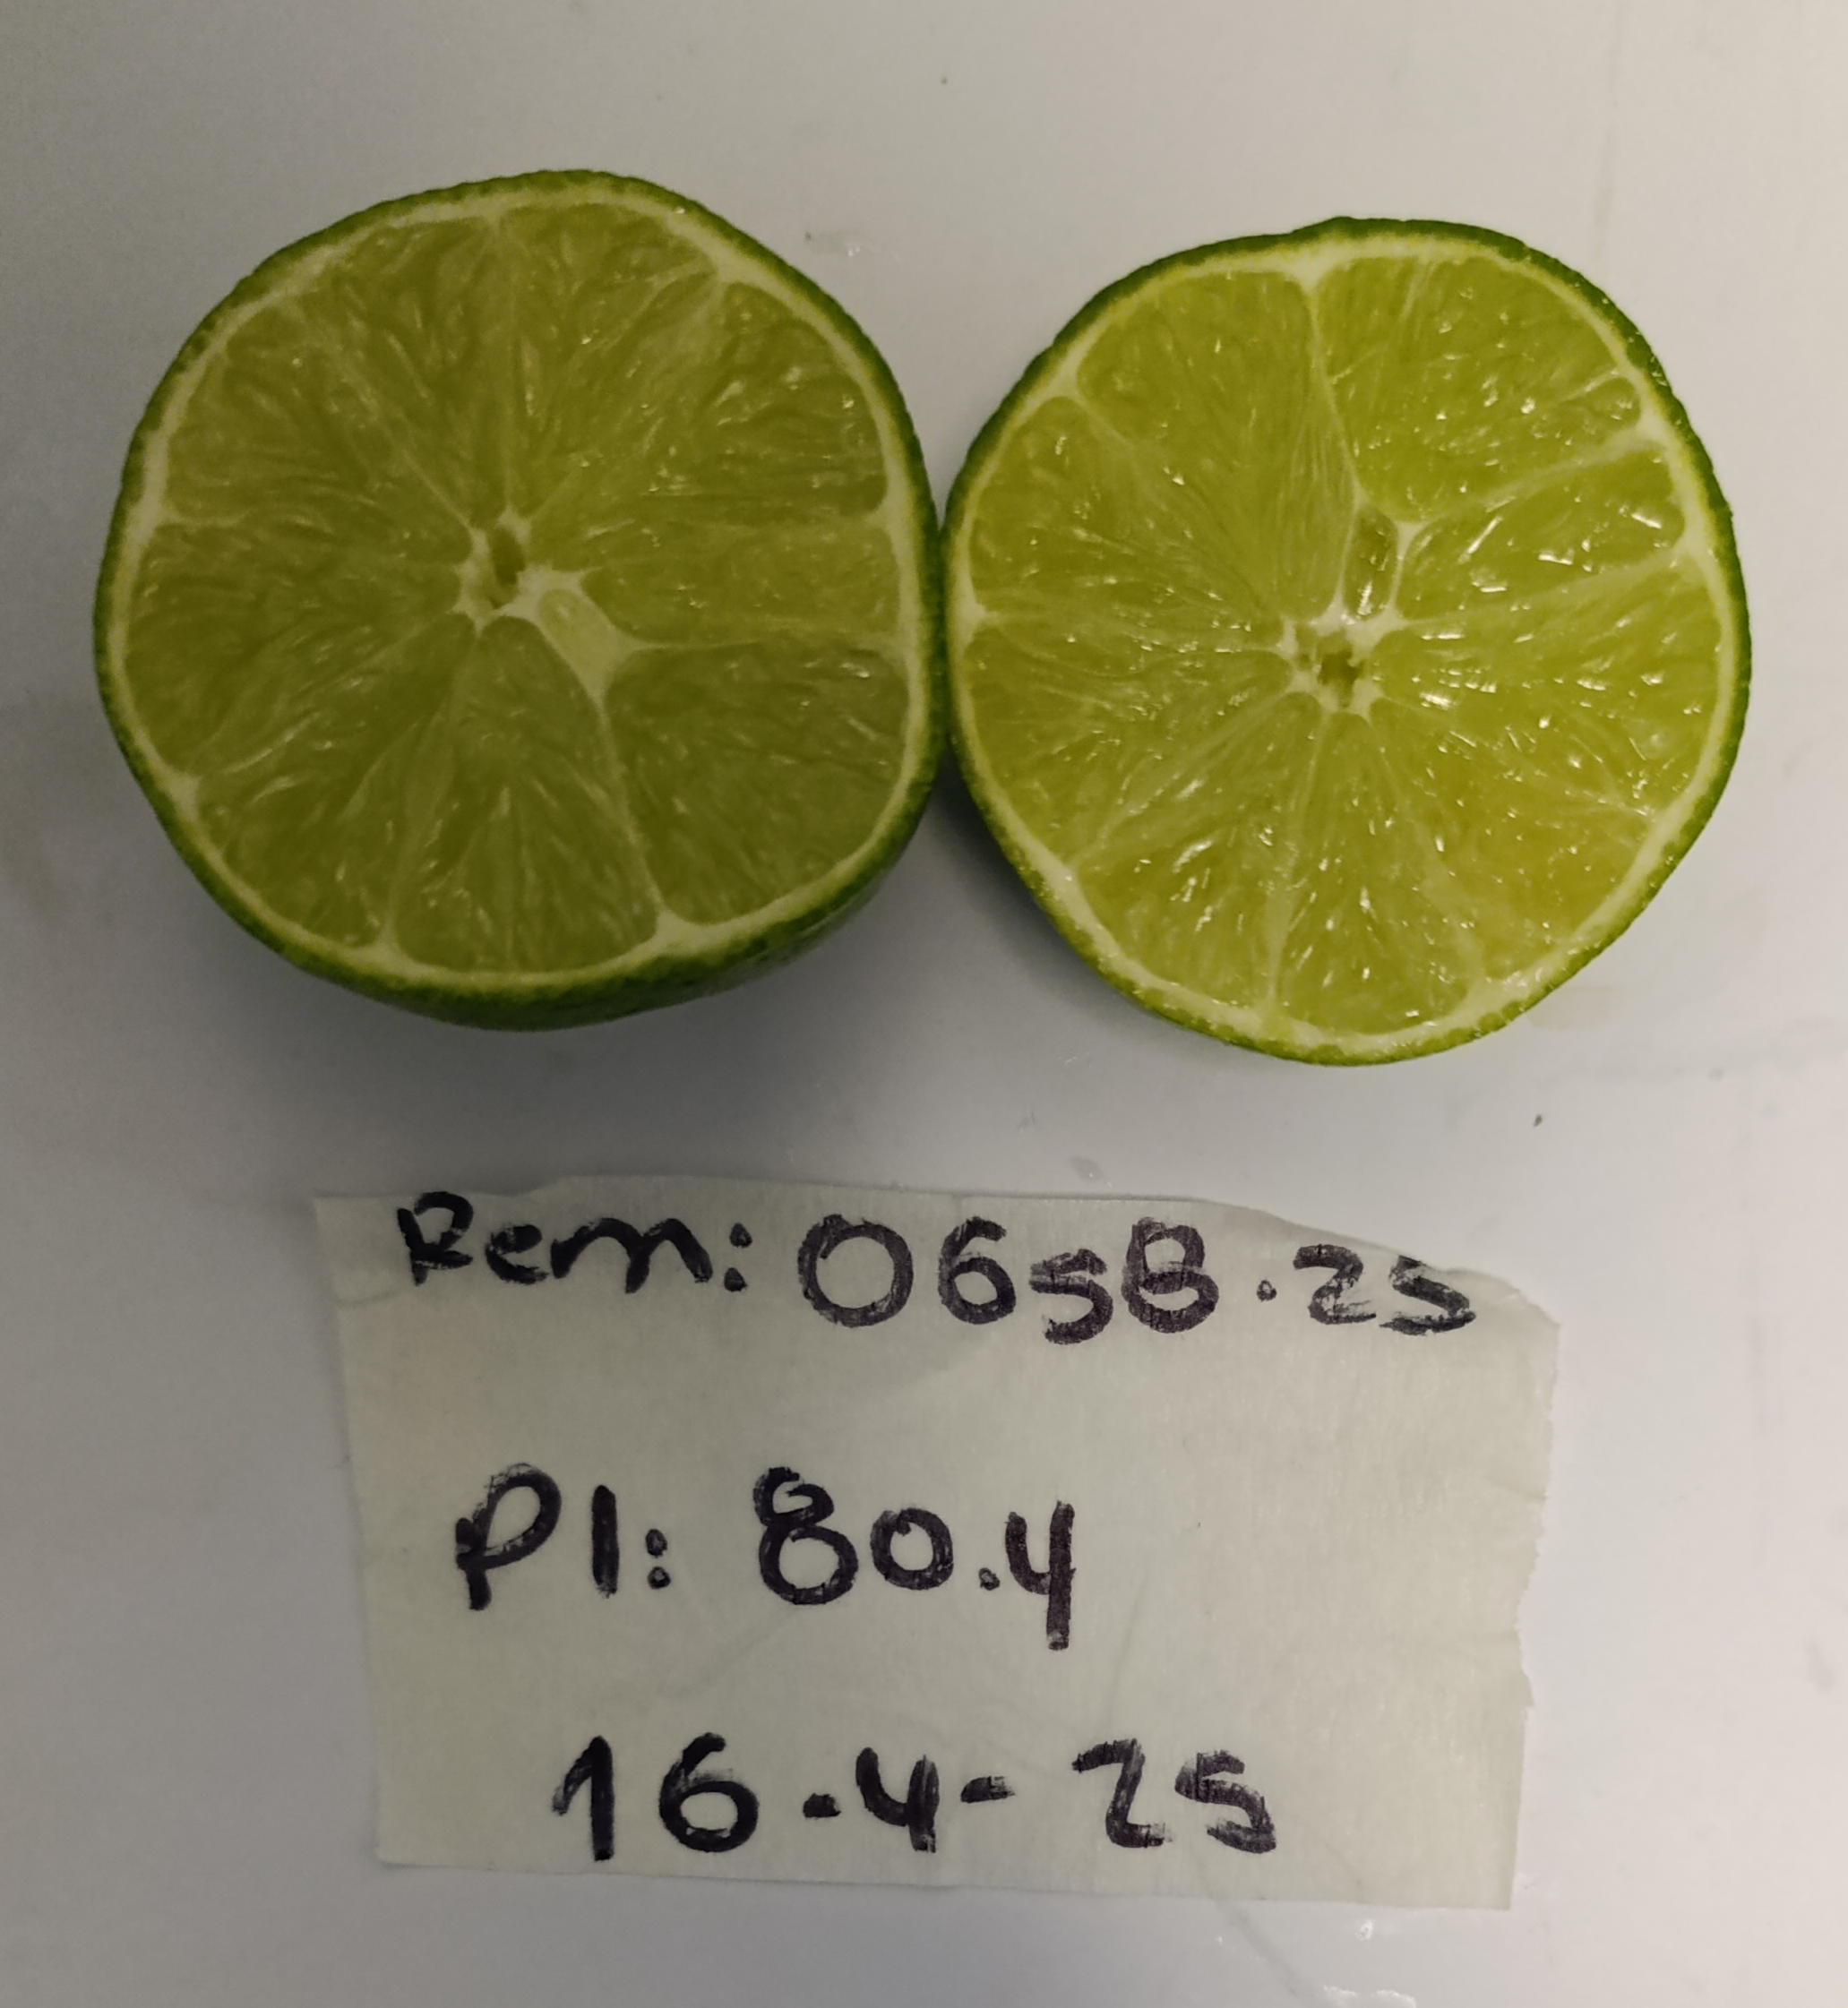 Rem: 0658.25
P1: 80.4
16-4-25